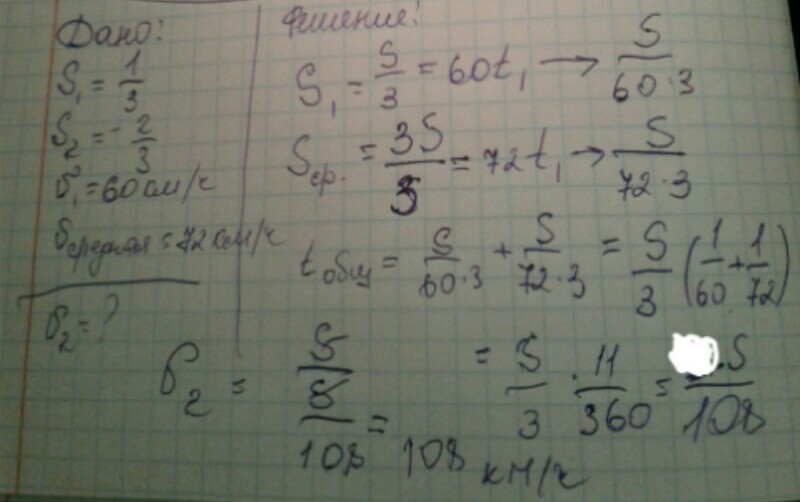 Дано:
S₁ = 1/3
S₂ = 2/3
v₁ = 60 км/ч
vсредняя = 72 км/ч
v₂ = ?
Решение:
S₁ = S/3 = 60t₁ → S/(60·3)
Sср. = 3S/3 = 72t₁ → S/(72·3)
tобщ = S/(60·3) + S/(72·3) = S/3 (1/60 + 1/72)
= S/3 · 11/360 = .S/108
v₂ = S/(S/108) = 108 км/ч